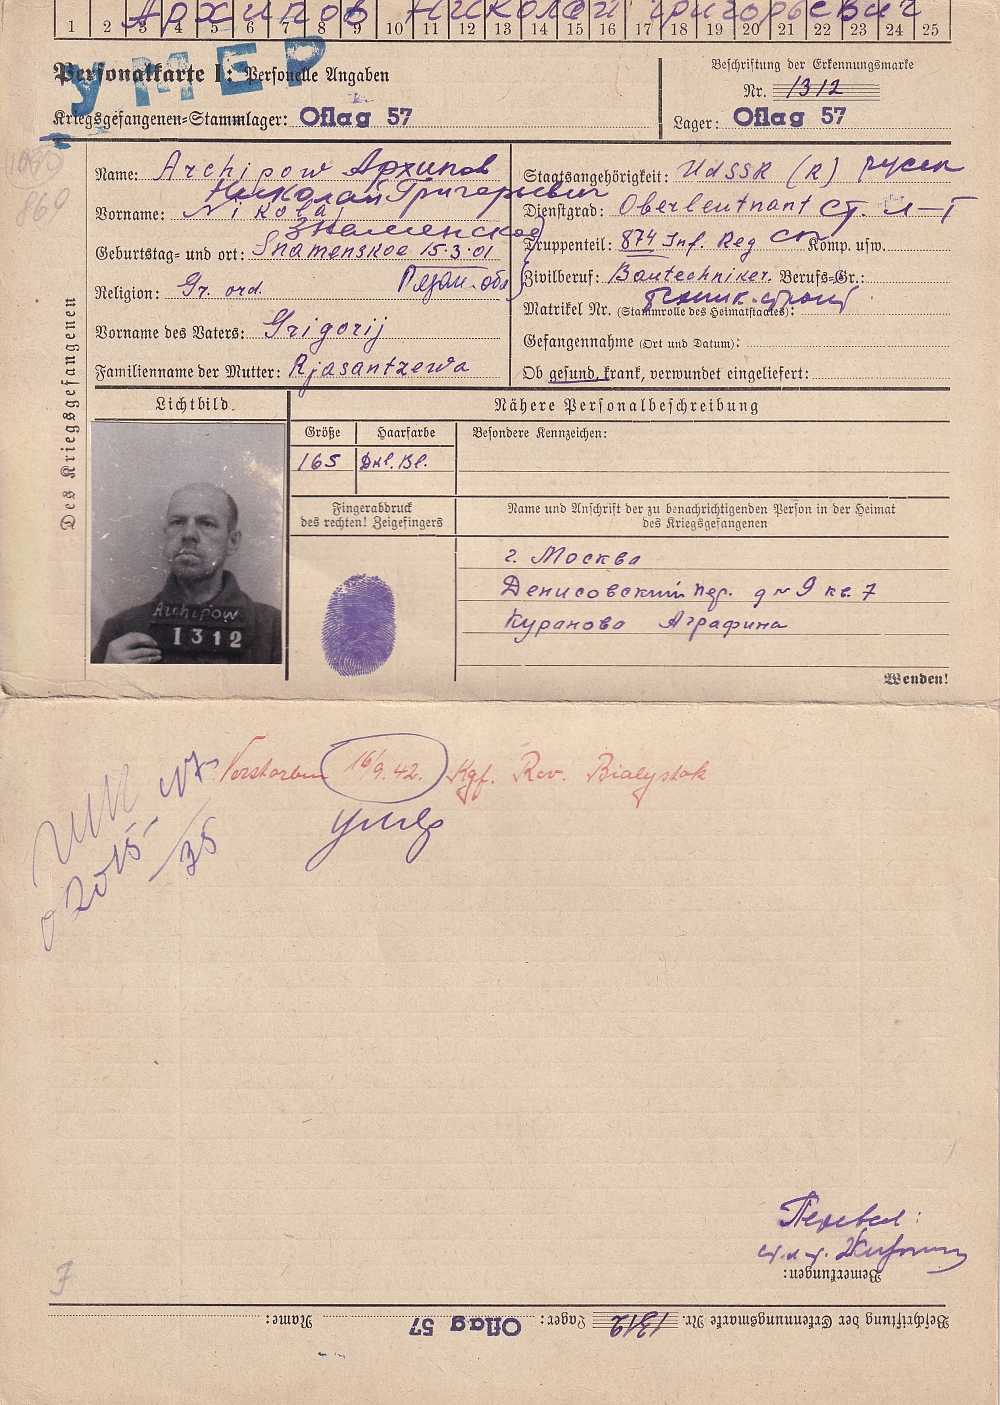 Архипов Николай Григорьевич
1 2 3 4 5 6 7 8 9 10 11 12 13 14 15 16 17 18 19 20 21 22 23 24 25
УМЕР
Personalkarte I: Personelle Angaben
Beschriftung der Erkennungsmarke
Nr. 1312
Kriegsgefangenen-Stammlager: Oflag 57
Lager: Oflag 57
869
Des Kriegsgefangenen
Name: Archipow Архипов
Николай Григорьевич
Vorname: Nikolaj
Знаменское
Geburtstag- und ort: Snamenskoe 15.3.01
Рязан. обл
Religion: Gr. ord.
Vorname des Vaters: Grigorij
Familienname der Mutter: Rjasantzewa
Staatsangehörigkeit: UdSSR (R) русск
Dienstgrad: Oberleutnant ст. л-т
Truppenteil: 874 Inf. Reg сп Komp. usw.
Zivilberuf: Bautechniker. Berufs-Gr.:
техник-строит
Matrikel Nr. (Stammrolle des Heimatstaates):
Gefangennahme (Ort und Datum):
Ob gesund, krank, verwundet eingeliefert:
Lichtbild
Nähere Personalbeschreibung
Größe Haarfarbe Besondere Kennzeichen:
165 Dkl. Bl.
Fingerabdruck
des rechten! Zeigefingers
Name und Anschrift der zu benachrichtigenden Person in der Heimat
des Kriegsgefangenen
г. Москва
Денисовский пер. д № 9 кв. 7
Куранова Аграфина
Archipow
1312
Wenden!
Verstorben 16/9.42. Kgf. Rev. Bialystok
умер
02015
35
Перевел:
Bemerkungen:
Beschriftung der Erkennungsmarke Nr. 1312 Lager: Oflag 57 Name: